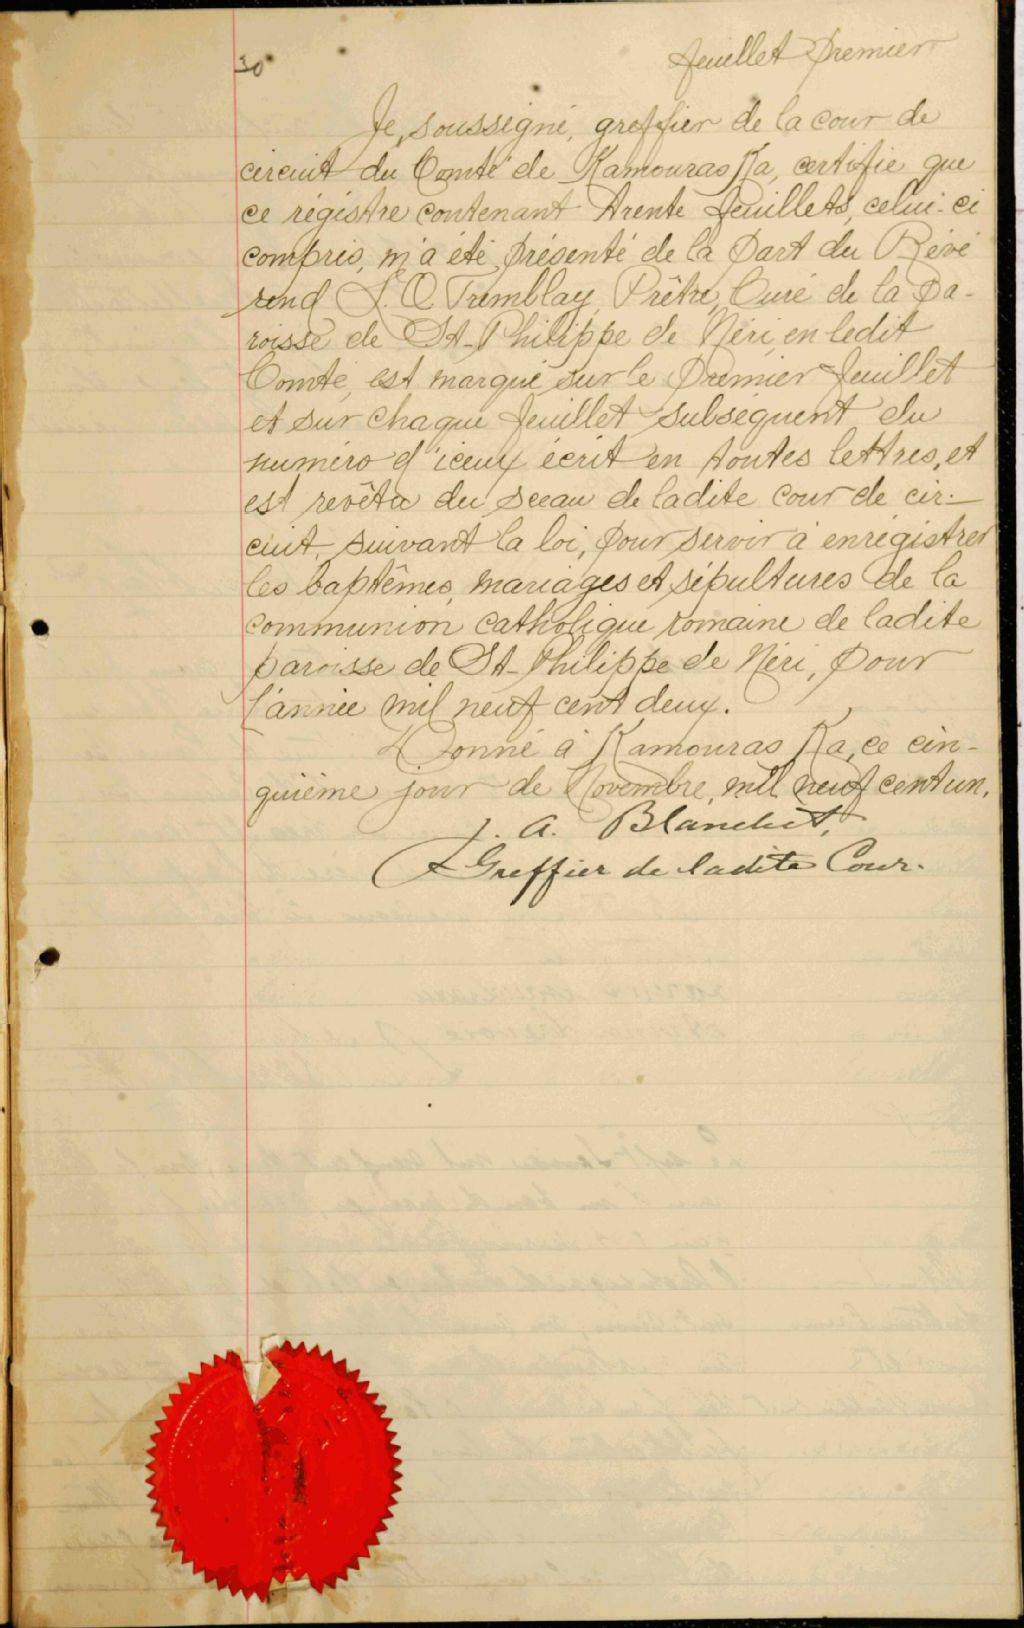 30
feuillet premier
Je, soussigné, greffier de la cour de
circuit du Comté de Kamouraska, certifie que
ce régistre contenant trente feuillets, celui-ci
compris, m'a été présenté de la part du Révé
rend L. O. Tremblay, Prêtre, Curé de la Pa-
roisse de St-Philippe de Néri, en ledit
Comté, est marqué sur le premier feuillet
et sur chaque feuillet subséquent du
numéro d'iceux écrit en toutes lettres, et
est revêtu du sceau de ladite cour de cir-
cuit, suivant la loi, pour servir à enrégistrer
les baptêmes, mariages et sépultures de la
communion catholique romaine de ladite
paroisse de St-Philippe de Néri, pour
l'année mil neuf cent deux.
Donné à Kamouraska, ce cin-
quième jour de Novembre, mil neuf cent un.
J. A. Blanchet,
Greffier de ladite Cour.